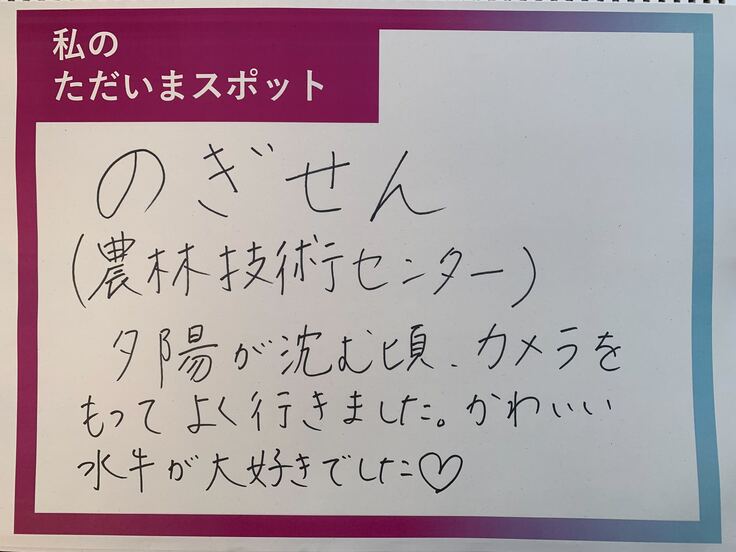 私の
ただいまスポット
のぎせん
(農林技術センター)
夕陽が沈む頃、カメラを
もってよく行きました。かわいい
水牛が大好きでした♡